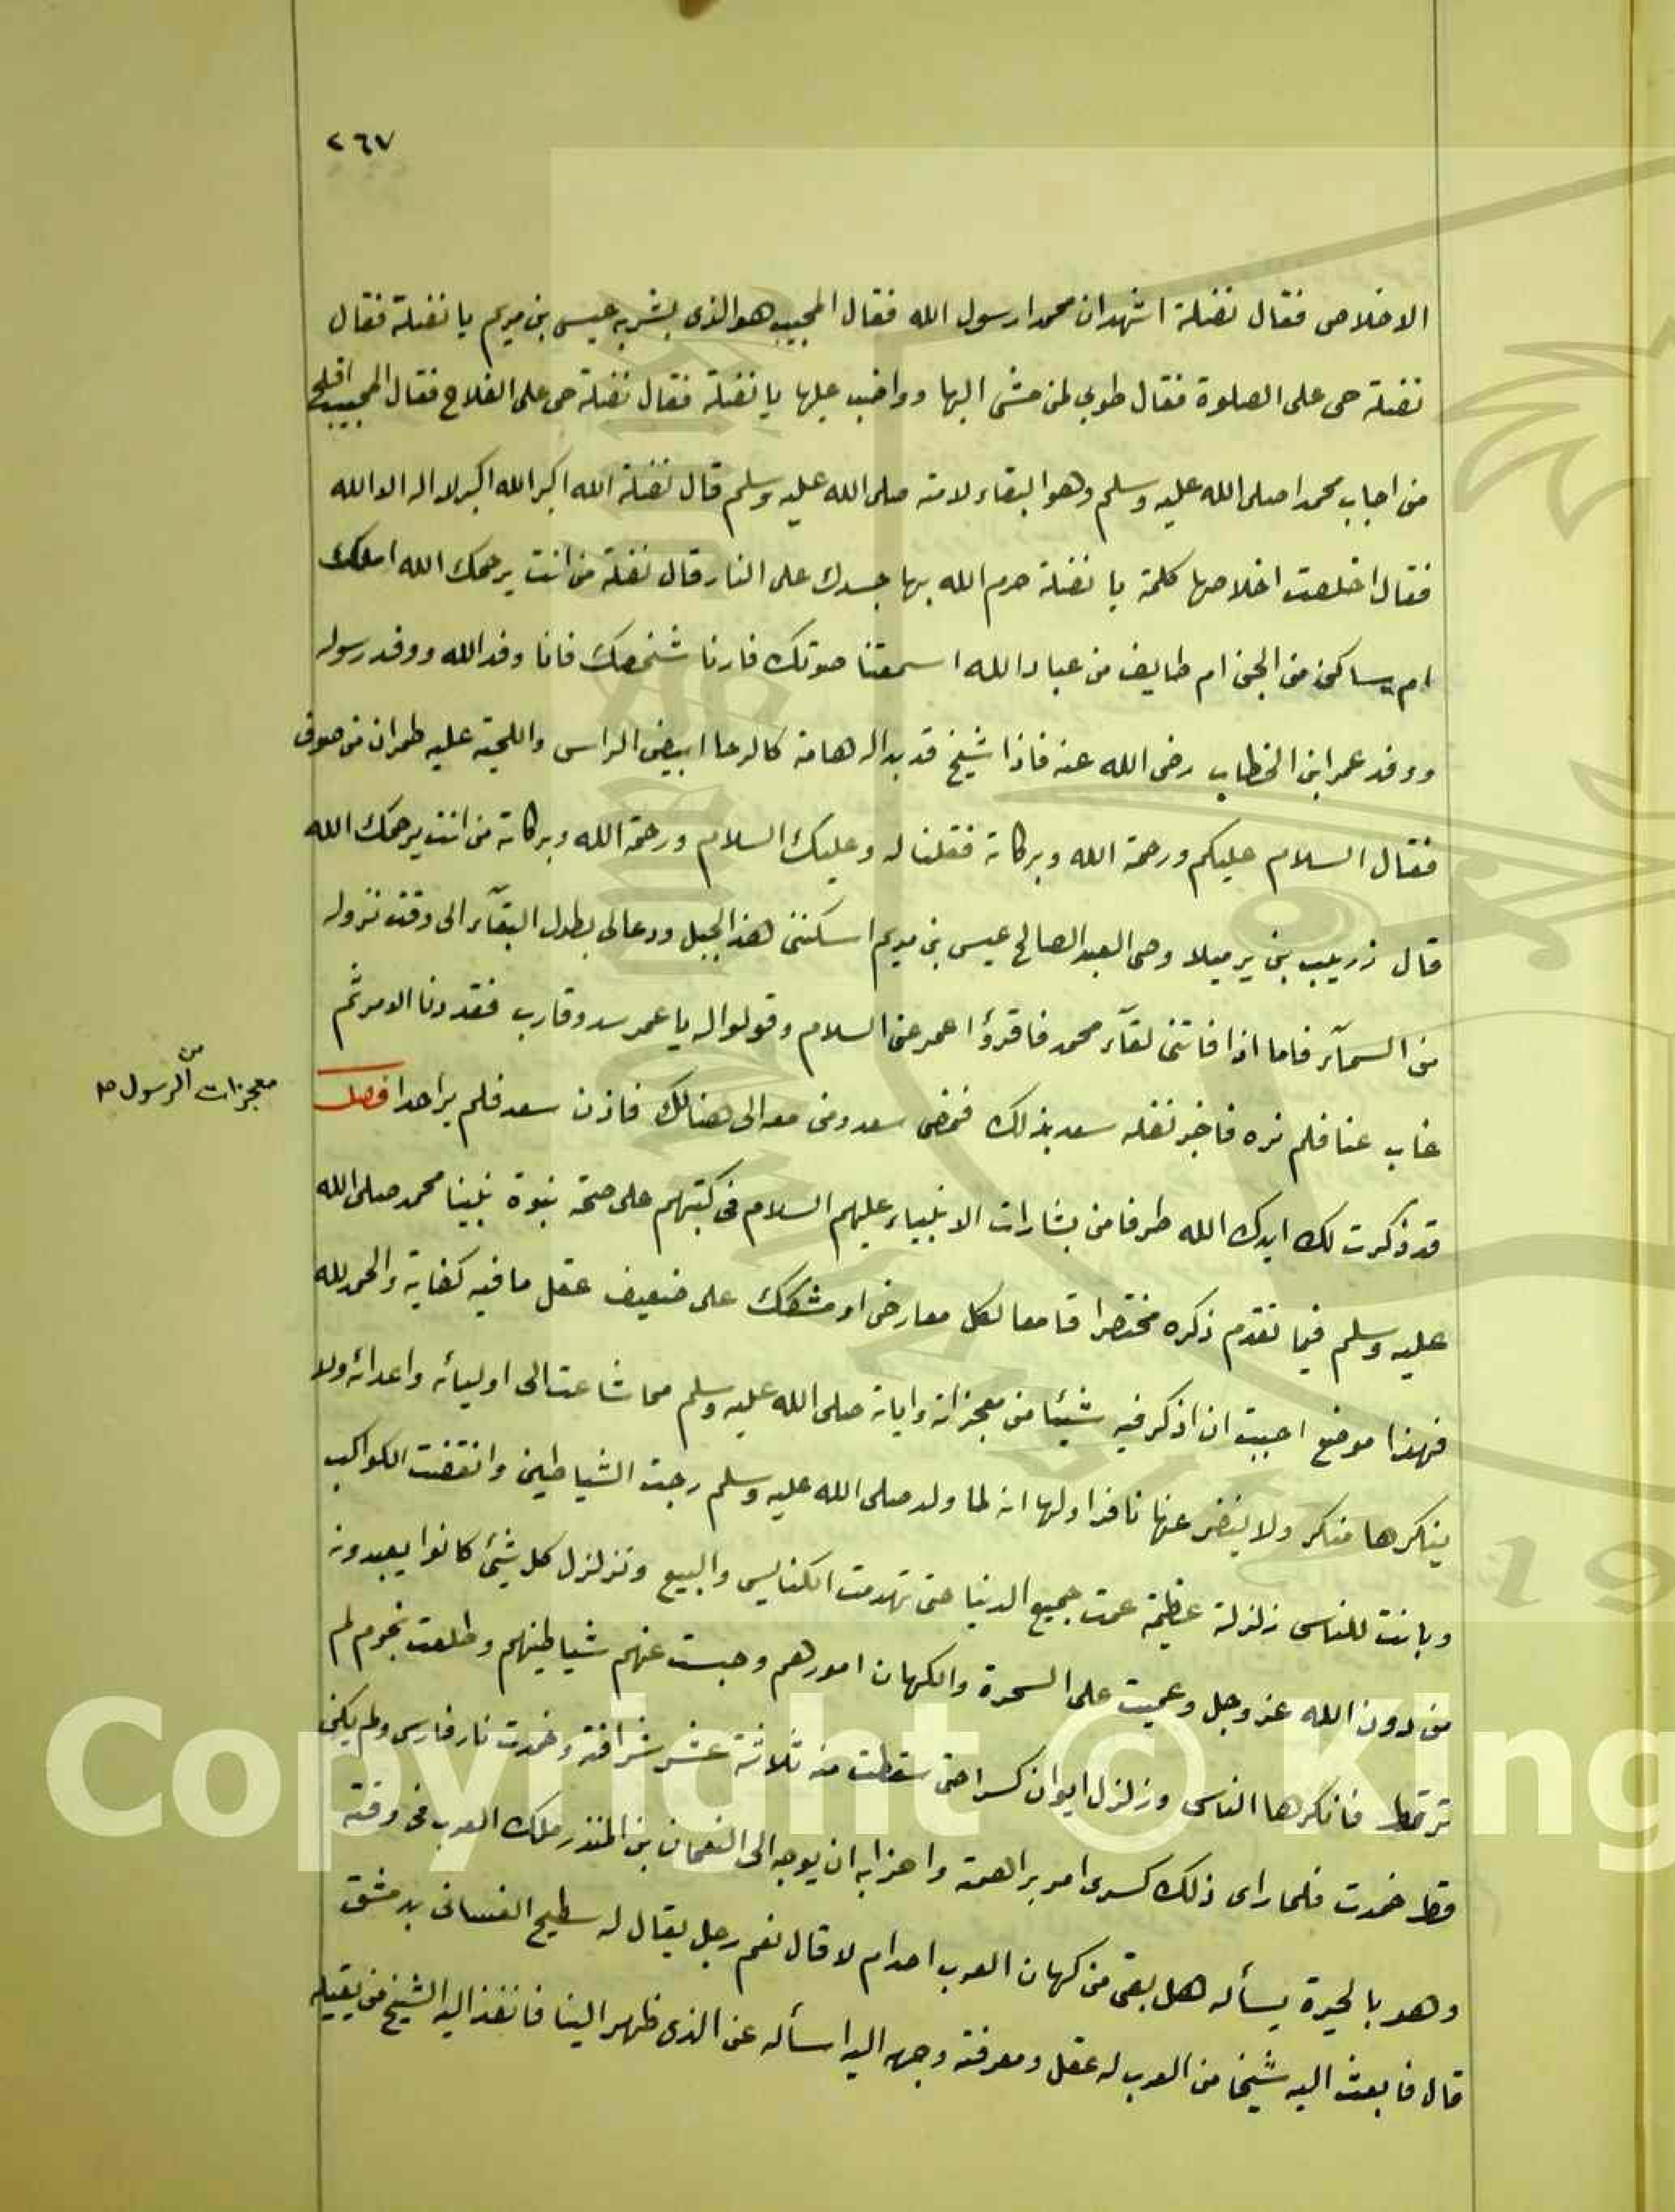 ٢٦٧
الاخلاص فقال نضلة اشهد ان محمدا رسول الله فقال المجيب هو الذى بشر به عيسى بن مريم يا نضلة فقال
نضلة حى على الصلوة فقال طوبى لمن مشى اليها وواضب عليها يا نضلة فقال نضلة حى على الفلاح فقال المجيب افلح
من اجاب محمدا صلى الله عليه وسلم وهو البقاء لامته صلى الله عليه وسلم قال نضلة الله اكبر الله اكبر لا اله الا الله
فقال اخلصت اخلاصها كلمة يا نضلة حرم الله بها جسدك على النار قال نضلة من انت يرحمك الله املك
ام ساكن من الجن ام طايف من عباد الله اسمعتنا صوتك فارنا شخصك فانا وفد الله ووفد رسوله
ووفد عمر ابن الخطاب رضى الله عنه فاذا شيخ قد بدا له هامة كالرحا ابيض الراس واللحية عليه طمران من صوف
فقال السلام عليكم ورحمة الله وبركاته فقلنا له وعليك السلام ورحمة الله وبركاته من انت يرحمك الله
قال زريب بن يرميلا وصى العبد الصالح عيسى بن مريم اسكننى هذا الجبل ودعا لى بطول البقآء الى وقت نزوله
من السمآء فاما اذا فاتنى لقآء محمد فاقرؤا عمر عنى السلام وقولوا له يا عمر سدد وقارب فقد دنا الامر ثم
غاب عنا فلم نره فاخبر نضله سعد بذلك فمضى سعد ومن معه الى هنالك فاذن سعد فلم ير احدا فصل
معجزات من الرسول ص
قد ذكرت لك ايدك الله طرفا من بشارات الانبياء عليهم السلام فى كتبهم على صحة نبوة نبينا محمد صلى الله
عليه وسلم فيما تقدم ذكره مختصرا قامعا لكل معارض او مشكك على ضعيف عقل ما فيه كفاية والحمد لله
فهذا موضع احببت ان اذكر فيه شيئا من معجزاته واياته صلى الله عليه وسلم مما شاعت الى اوليائه واعدائه ولا
ينكرها منكر ولا ينفر عنها نافر اولها انه لما ولد صلى الله عليه وسلم رجت الشياطين وانقضت الكواكب
وبانت للناس زلزلة عظيمة عمت جميع الدنيا حتى تهدمت الكنايس والبيع وتزلزل كل شيئ كانوا يعبدونه
من دون الله عز وجل وعميت على السحرة والكهان امورهم وحبست عنهم شياطينهم وطلعت نجوم لم
تر قط فانكرها الناس وزلزل ايوان كسرا حتى سقطت منه ثلاثة عشر شرافة وخمدت نار فارس ولم يكن
قط خمدت فلما راى ذلك كسرى امر براهمته واحزابه ان يوجه الى النعمان بن المنذر ملك العرب فى وقته
وهو بالحيرة يسأله هل بقى من كهان العرب احد ام لا قال نعم رجل يقال له سطيح الغسانى بدمشق
قال فابعث اليه شيخا من العرب له عقل ومعرفة وجهه اليه اسأله عن الذى ظهر الينا فانفذ اليه الشيخ من بقيله
Copyright © King
19